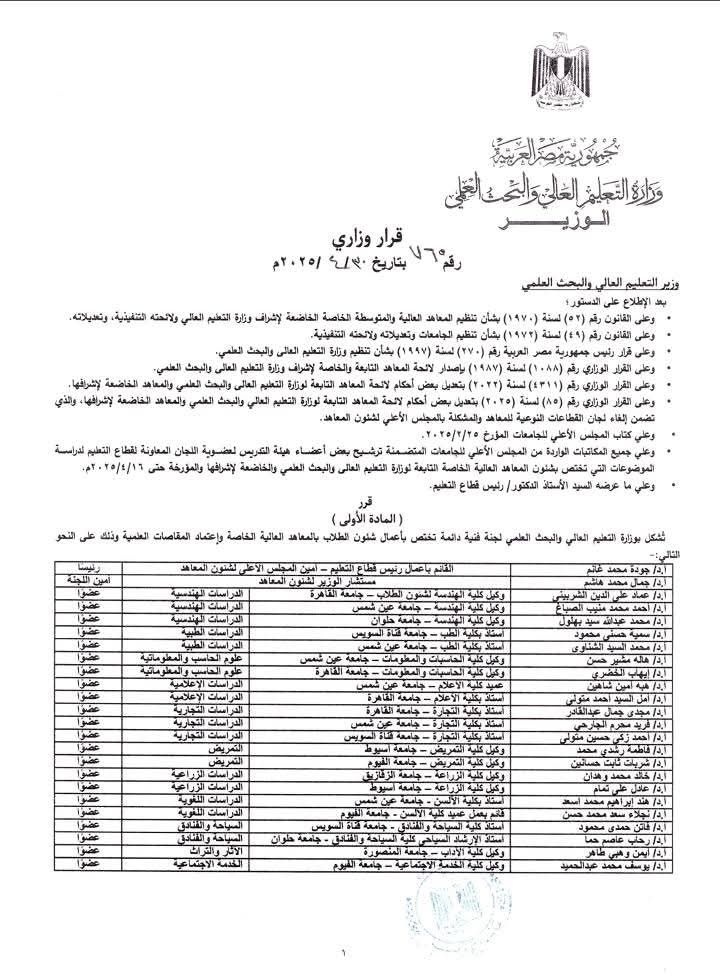 جمهورية مصر العربية
وزارة التعليم العالي والبحث العلمي
الوزير
قرار وزاري
رقم ٧٦٥ بتاريخ ٤/٣٠ /٢٠٢٥م
وزير التعليم العالي والبحث العلمي
بعد الإطلاع على الدستور؛
• وعلى القانون رقم (٥٢) لسنة (١٩٧٠) بشأن تنظيم المعاهد العالية والمتوسطة الخاصة الخاضعة لإشراف وزارة التعليم العالي ولائحته التنفيذية، وتعديلاته.
• وعلى القانون رقم (٤٩) لسنة (١٩٧٢) بشأن تنظيم الجامعات وتعديلاته ولائحته التنفيذية.
• وعلى قرار رئيس جمهورية مصر العربية رقم (٢٧٠) لسنة (١٩٩٧) بشأن تنظيم وزارة التعليم العالى والبحث العلمي.
• وعلى القرار الوزاري رقم (١٠٨٨) لسنة (١٩٨٧) بإصدار لائحة المعاهد التابعة والخاصة لإشراف وزارة التعليم العالى والبحث العلمي.
• وعلى القرار الوزاري رقم (٤٣١١) لسنة (٢٠٢٢) بتعديل بعض أحكام لائحة المعاهد التابعة لوزارة التعليم العالى والبحث العلمي والمعاهد الخاضعة لإشرافها.
• وعلى القرار الوزاري رقم (٨٥) لسنة (٢٠٢٥) بتعديل بعض أحكام لائحة المعاهد التابعة لوزارة التعليم العالى والبحث العلمي والمعاهد الخاضعة لإشرافها، والذي
تضمن إلغاء لجان القطاعات النوعية للمعاهد والمشكلة بالمجلس الأعلي لشئون المعاهد.
• وعلي كتاب المجلس الأعلي للجامعات المؤرخ ٢٠٢٥/٢/٢٥.
• وعلي جميع المكاتبات الواردة من المجلس الأعلي للجامعات المتضمنة ترشيح بعض أعضاء هيئة التدريس لعضوية اللجان المعاونة لقطاع التعليم لدراسة
الموضوعات التي تختص بشئون المعاهد العالية الخاصة التابعة لوزارة التعليم العالى والبحث العلمي والخاضعة لإشرافها والمؤرخة حتى ٢٠٢٥/٤/١٦م.
• وعلي ما عرضه السيد الأستاذ الدكتور/ رئيس قطاع التعليم.
قرر
( المادة الأولى )
تُشكل بوزارة التعليم العالي والبحث العلمي لجنة فنية دائمة تختص بأعمال شئون الطلاب بالمعاهد العالية الخاصة وإعتماد المقاصات العلمية وذلك على النحو
التالي:-
أ.د/ جودة محمد غانم القائم بأعمال رئيس قطاع التعليم – أمين المجلس الأعلى لشئون المعاهد رئيسًا
أ.د/ جمال محمد هاشم مستشار الوزير لشئون المعاهد أمين اللجنة
أ.د/ عماد علي الدين الشربيني وكيل كلية الهندسة لشئون الطلاب – جامعة القاهرة الدراسات الهندسية عضوًا
أ.د/ أحمد محمد منيب الصباغ وكيل كلية الهندسة – جامعة عين شمس الدراسات الهندسية عضوًا
أ.د/ محمد عبدالله سيد بهلول وكيل كلية الهندسة – جامعة حلوان الدراسات الهندسية عضوًا
أ.د/ سمية حسني محمود أستاذ بكلية الطب – جامعة قناة السويس الدراسات الطبية عضوًا
أ.د/ محمد السيد الشناوى أستاذ بكلية الطب – جامعة عين شمس الدراسات الطبية عضوًا
أ.د/ هاله مشير حسن وكيل كلية الحاسبات والمعلومات – جامعة عين شمس علوم الحاسب والمعلوماتية عضوًا
أ.د/ إيهاب الخضري وكيل كلية الحاسبات والمعلومات – جامعة القاهرة علوم الحاسب والمعلوماتية عضوًا
أ.د/ هبه أمين شاهين عميد كلية الأعلام – جامعة عين شمس الدراسات الإعلامية عضوًا
أ.د/ أمل السيد أحمد متولى أستاذ بكلية الأعلام – جامعة القاهرة الدراسات الإعلامية عضوًا
أ.د/ مجدى جمال عبدالقادر أستاذ بكلية التجارة – جامعة القاهرة الدراسات التجارية عضوًا
أ.د/ فريد محرم الجارحي أستاذ بكلية التجارة – جامعة عين شمس الدراسات التجارية عضوًا
أ.د/ أحمد زكي حسين متولى أستاذ بكلية التجارة – جامعة قناة السويس الدراسات التجارية عضوًا
أ.د/ فاطمة رشدي محمد وكيل كلية التمريض – جامعة أسيوط التمريض عضوًا
أ.د/ شربات ثابت حسانين وكيل كلية التمريض – جامعة الفيوم التمريض عضوًا
أ.د/ خالد محمد وهدان وكيل كلية الزراعة – جامعة الزقازيق الدراسات الزراعية عضوًا
أ.د/ عادل علي تمام وكيل كلية الزراعة – جامعة أسيوط الدراسات الزراعية عضوًا
أ.د/ هند إبراهيم محمد أسعد أستاذ بكلية الألسن - جامعة عين شمس الدراسات اللغوية عضوًا
أ.د/ نجلاء سعد محمد حسن قائم بعمل عميد كلية الألسن - جامعة الفيوم الدراسات اللغوية عضوًا
أ.د/ فاتن حمدى محمود أستاذ كلية السياحة والفنادق - جامعة قناة السويس السياحة والفنادق عضوًا
أ.د/ رحاب عاصم حما أستاذ الإرشاد السياحي كلية السياحة والفنادق - جامعة حلوان السياحة والفنادق عضوًا
أ.د/ أيمن وهبي طاهر وكيل كلية الآداب – جامعة المنصورة الآثار والتراث عضوًا
أ.د/ يوسف محمد عبدالحميد وكيل كلية الخدمة الإجتماعية – جامعة الفيوم الخدمة الاجتماعية عضوًا
١